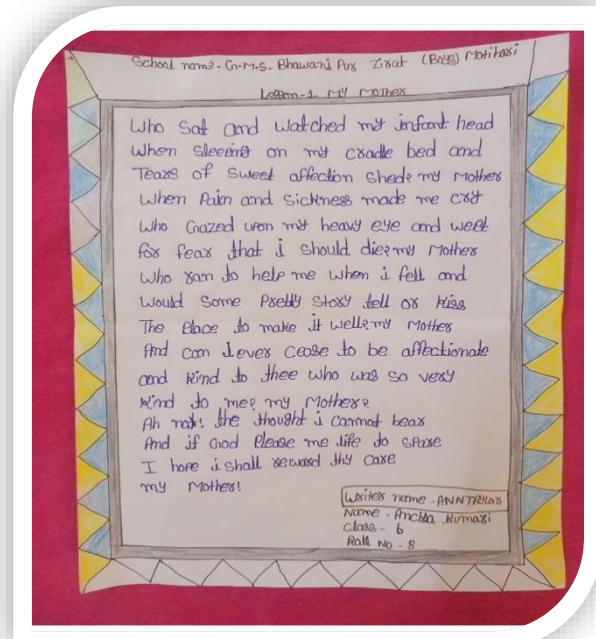 School name - G.M.S. Bhawani Pur Zirat (Boys) Motihari
Lesson-1. My Mother
Who Sat and Watched my infant head
When Sleeping on my cradle bed and
Tears of Sweet affection Shed? my Mother
When Pain and Sickness made me cry
Who Gazed upon my heavy eye and weet
for fear that i should die? my Mother
Who ran to help me when i fell and
Would Some Pretty Story tell or Kiss
The Place to make it well? my Mother
And can I ever cease to be affectionate
and Kind to thee who was so very
Kind to me? my Mother?
Ah not! the thought i cannot bear
And if God Please me life to Spare
I hope i shall reward thy care
my Mother!
Writer name - ANN TAYLOR
Name - Kumari
Class - 6
Roll No - 8